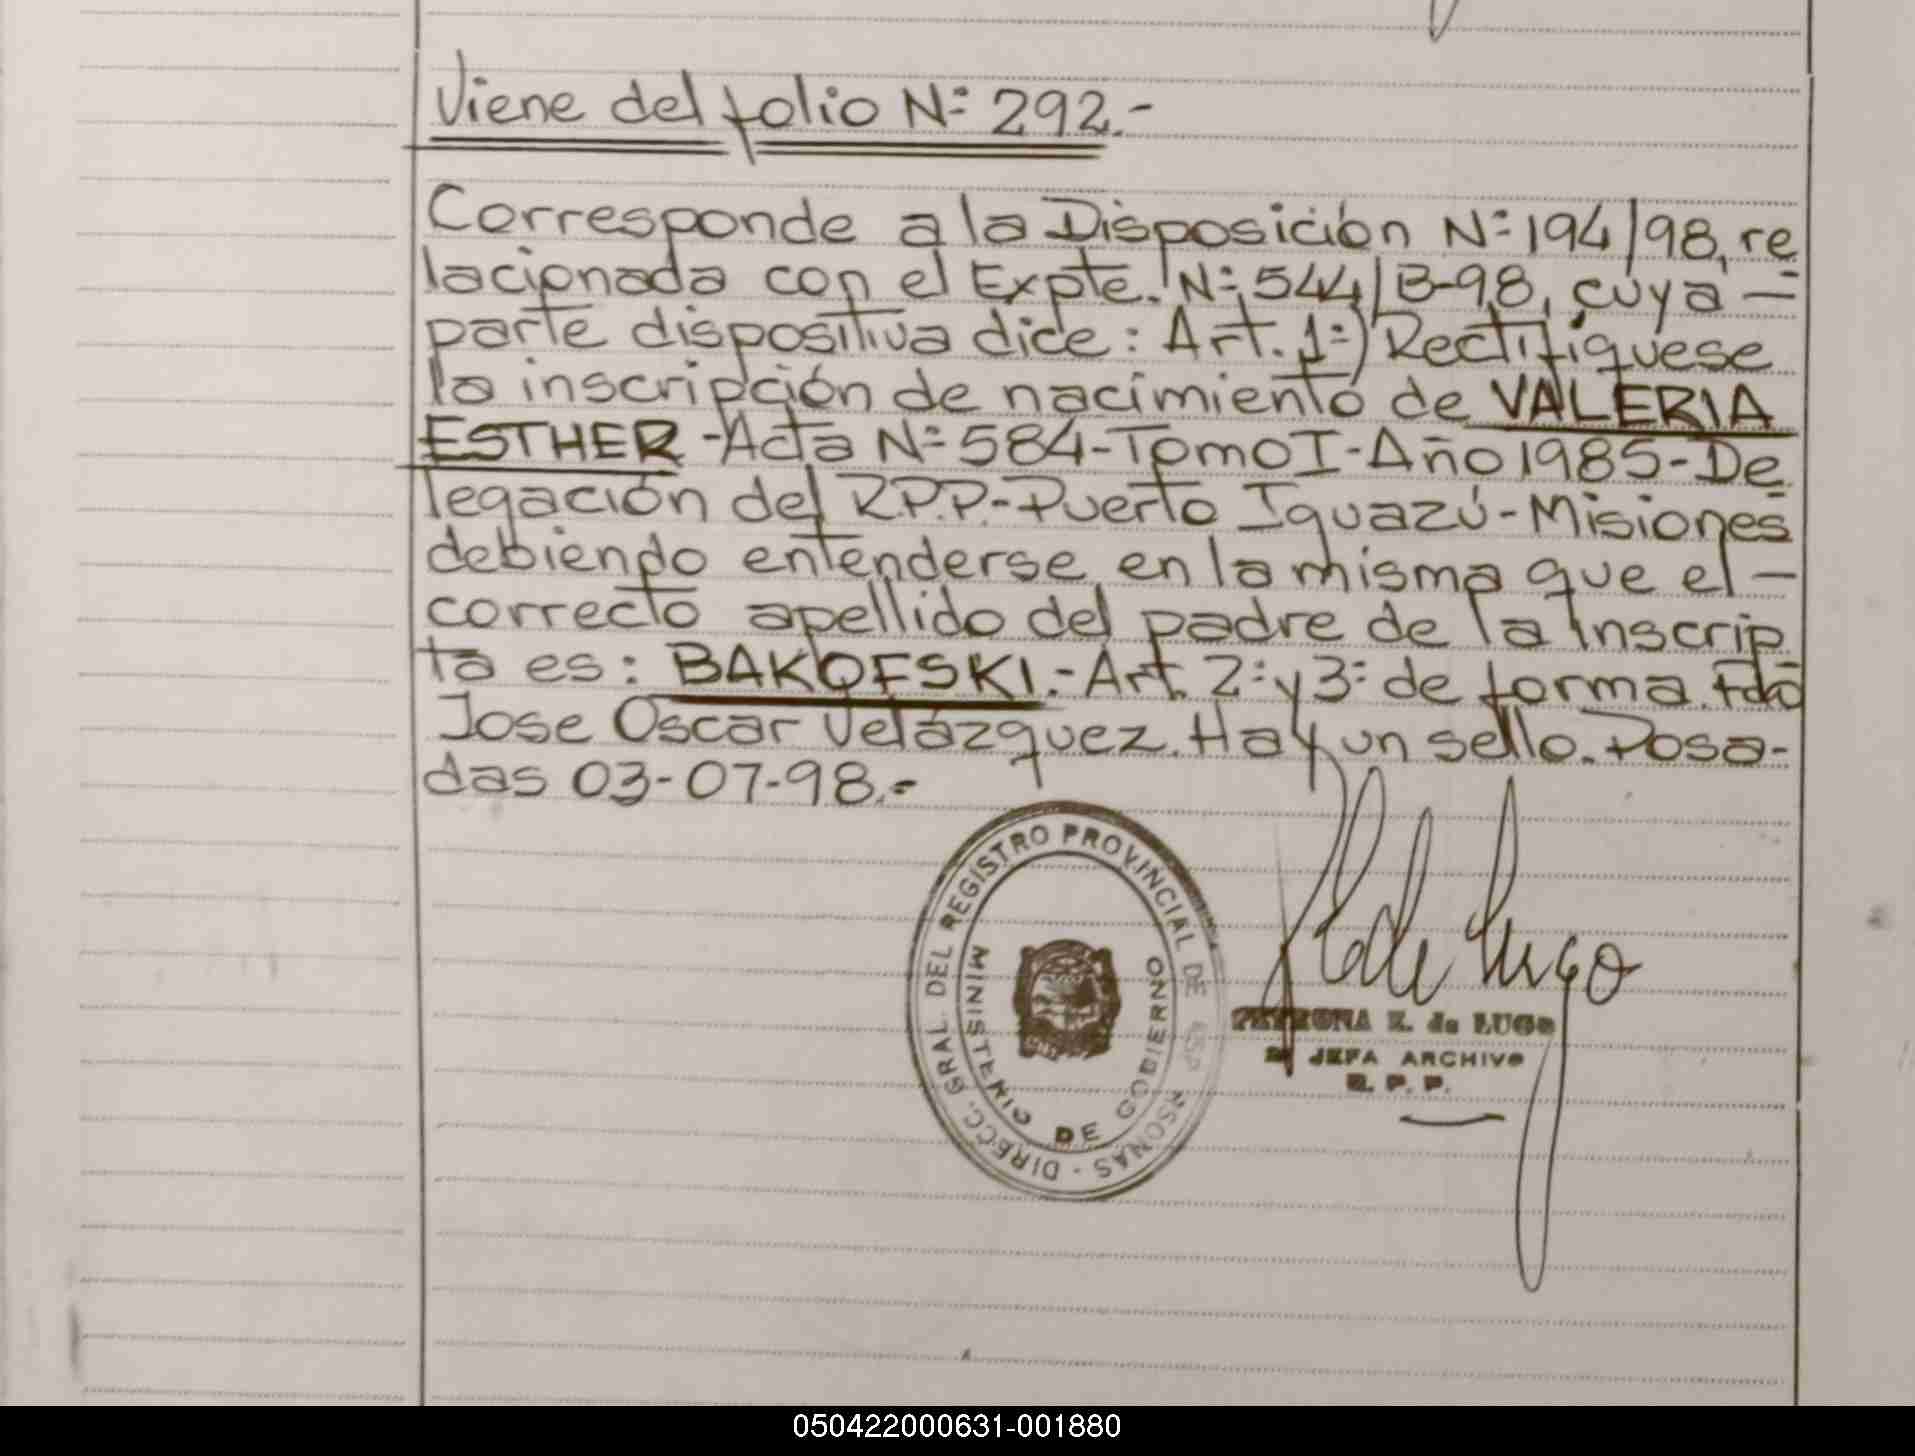 Viene del folio Nº 292.-
Corresponde a la Disposición Nº 194/98, re
lacionada con el Expte. Nº 544/B-98, cuya —
parte dispositiva dice: Art. 1º) Rectifíquese
la inscripción de nacimiento de VALERIA
ESTHER - Acta Nº 584 - Tomo I - Año 1985 - De
legación del R.P.P. - Puerto Iguazú - Misiones
debiendo entenderse en la misma que el —
correcto apellido del padre de la inscrip
ta es: BAKOFSKI.- Art. 2º y 3º de forma. Fdo
Jose Oscar Velázquez. Hay un sello. Posa-
das 03-07-98.-
DIRECC. GRAL. DEL REGISTRO PROVINCIAL DE
MINISTERIO DE GOBIERNO
de Lugo
PETRONA E. de LUGO
JEFA ARCHIVO
R. P. P.
050422000631-001880